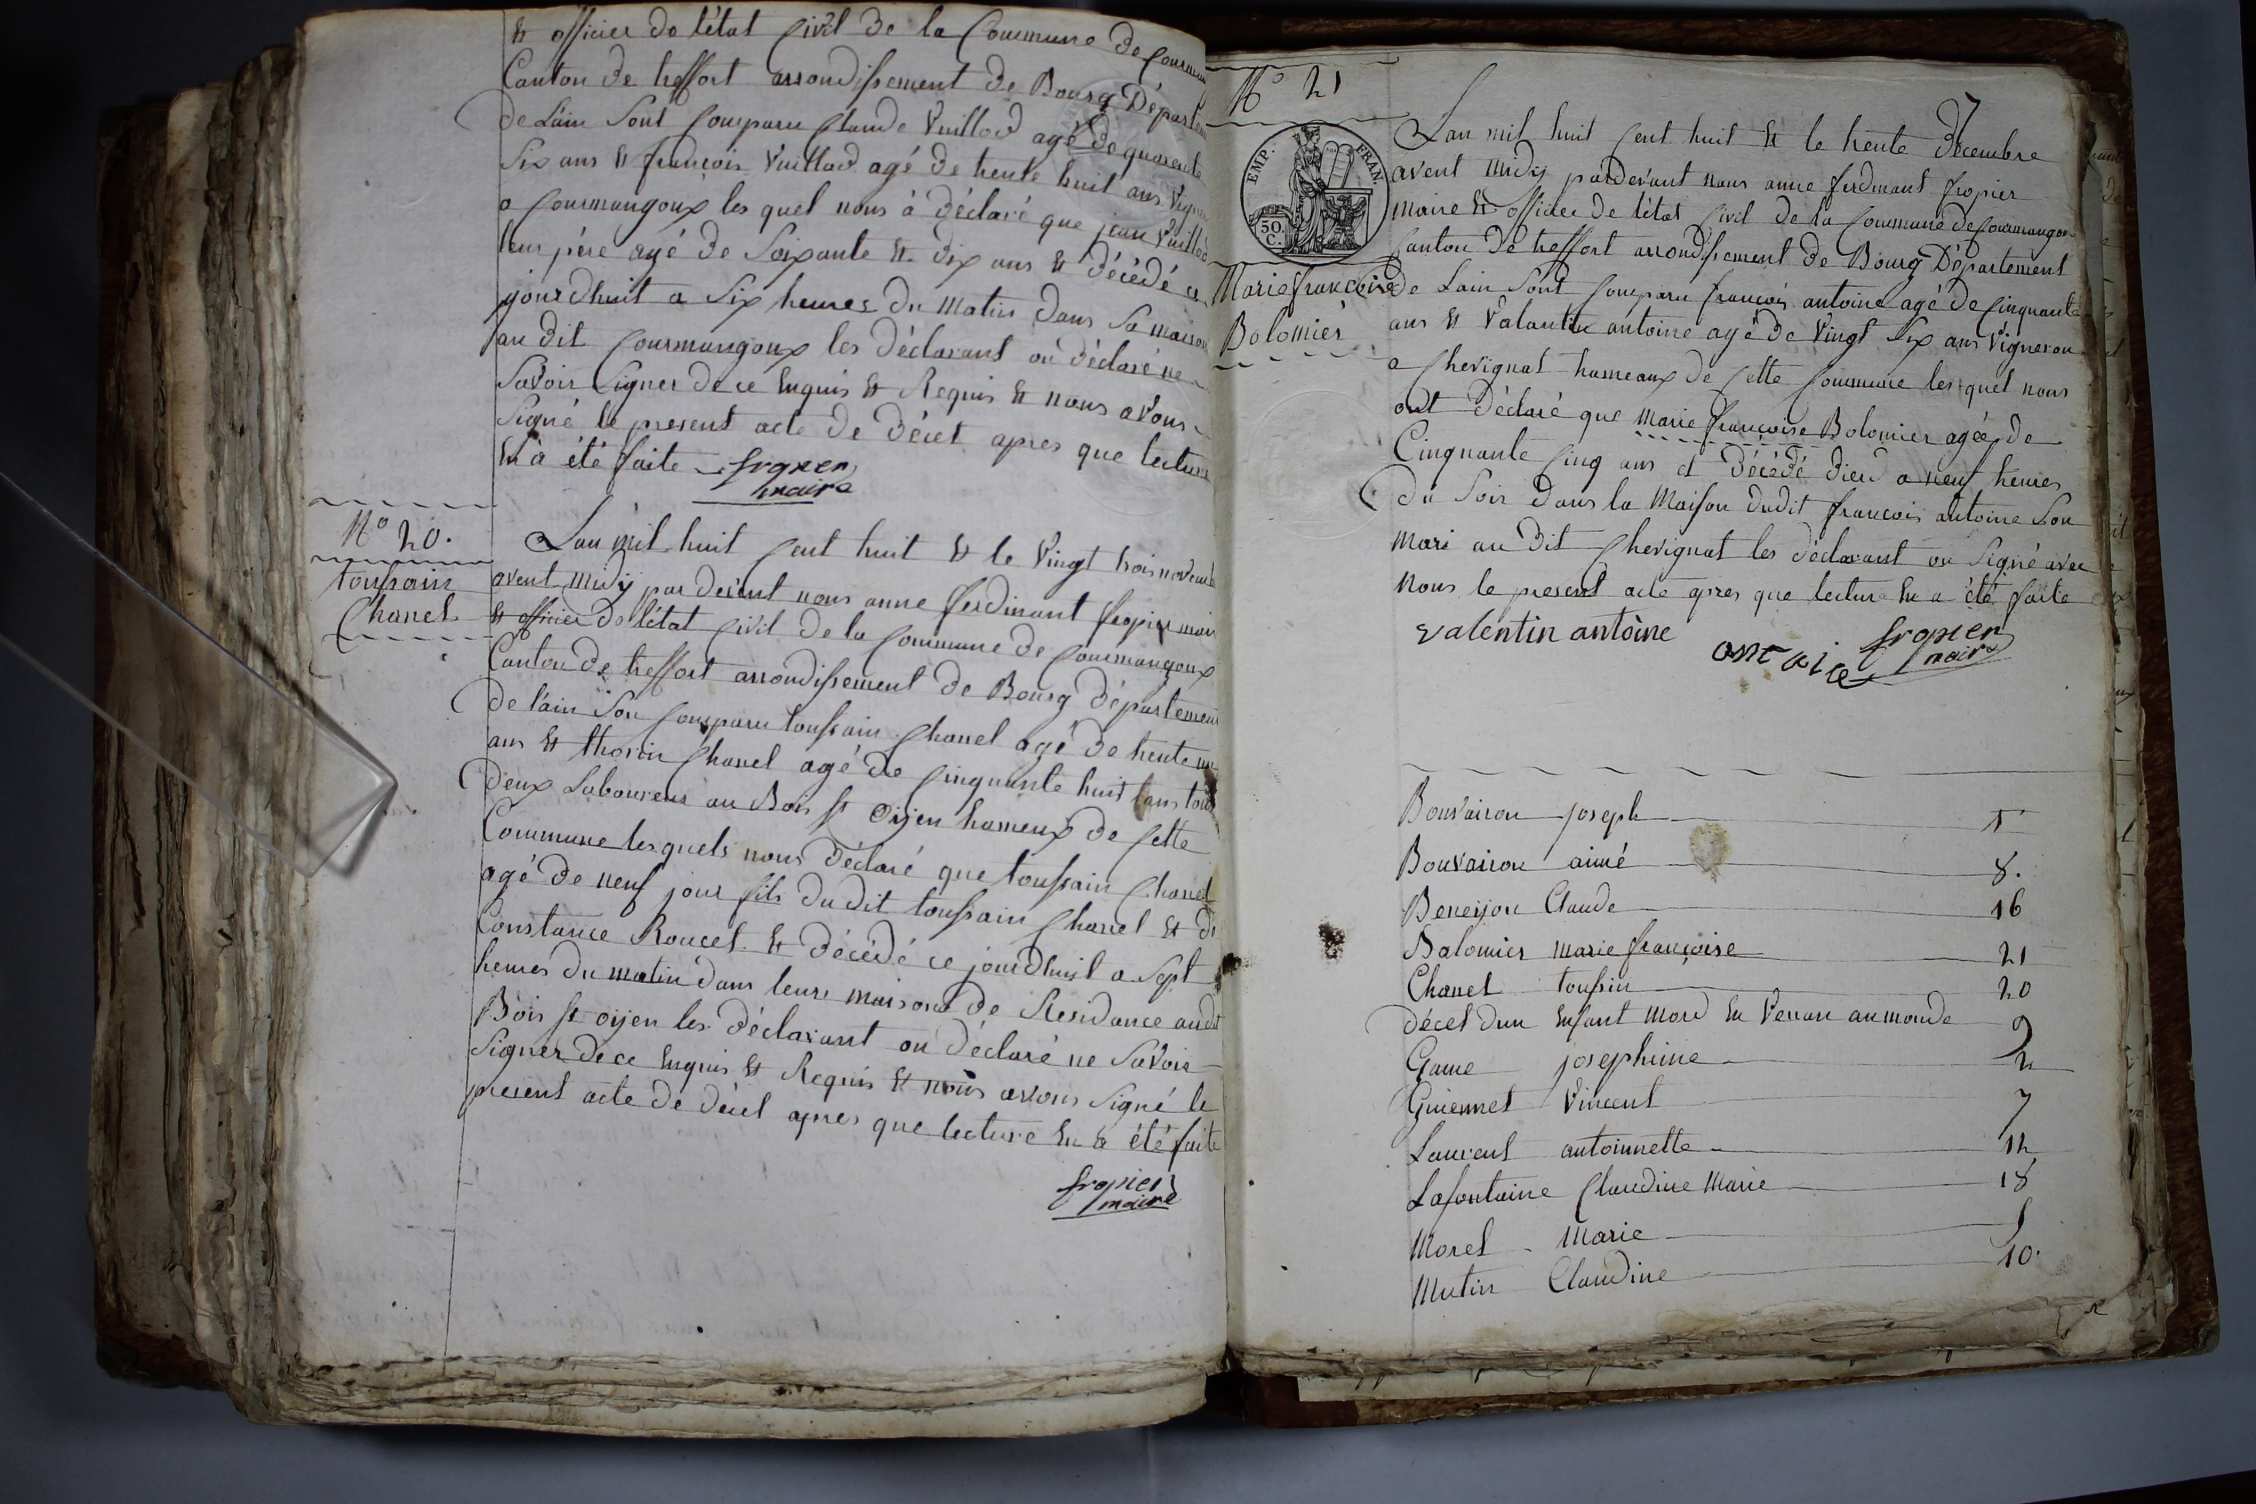 Et officier de létat Civil de la Commune de
Canton de treffort arrondissement de Bourg
de Lain Sont Comparu Claude Vuillod agé de quarente
Six ans Et françois Vuillod agé de trente huit ans
a Courmangoux les quel nous à déclaré que jean Vuillod
leur pére agé de Soixante Et dix ans Et décédé ce
jourdhuit a Six heures du Matin dans Sa maison
au dit Courmangoux les déclarant on déclaré ne
Savoir Signer de ce Enquis Et Requis Et nous avons
Signé le present acte de décet apres que lecture
En à été faite fropier
maire
No 20.
toussain
Chanel
Lan mil huit Cent huit Et le Vingt trois
avent midÿ par devent nous anne ferdinant fropier mair
Et officier de létat Civil de la Commune de Courmangoux
Canton de treffort arrondissement de Bourg Département
de lain Son Comparu toussain Chanel agé de trente
ans Et thorin Chanel agé de Cinquante huit ans tous
deux Laboureur au Bois St Oÿen hameux de Cette
Commune lesquels nous déclaré que toussain Chanel
agé de neuf jour fils dudit toussain Chanel Et de
Constance Roucet Et décédé ce jourdhuit a Sept
heures du matin dans leure maisons de Residance audit
Bois St oÿen les déclarant on déclaré ne Savoir
Signer de ce Enquis Et Requis Et nous avons Signé le
present acte de décet apres que lecture En a été faite
fropier
maire
No 21
EMP. FRAN.
50. C.
Marie françoise
Bolomier
Lan mil huit Cent huit Et le trente décembre
avent midÿ pardevant nous anne ferdinant fropier
maire Et officier de létat Civil de la Commune de Courmangoux
Canton de treffort arrondissement de Bourg Département
de Lain Sont Comparu françois antoine agé de Cinquante
ans Et Valantin antoine agé de Vingt Six ans Vigneron
a Chevignat hameaux de Cette Commune les quel nous
ont déclaré que Marie françoise Bolomier agée de
Cinquante Cinq ans et décédé dier a neuf heures
du Soir dans la Maison dudit françois antoine Son
Mari au dit Chevignat les déclarant on Signé avec
Nous le present acte apres que lecture En a été faite
valentin antoine
fropier
maire
Bouvairon joseph
Bouvairon aimé 8.
Beneÿou Claude 16
Balomier marie françoise 21
Chanel toussin 20
décet dun Enfant Mord En Venan au monde 9
Game josephine 2
Guiennet Vincent 7
Laurent antoinnette 12
Lafontaine Claudine Marie 18
Morel Marie 1
Mutin Claudine 10.